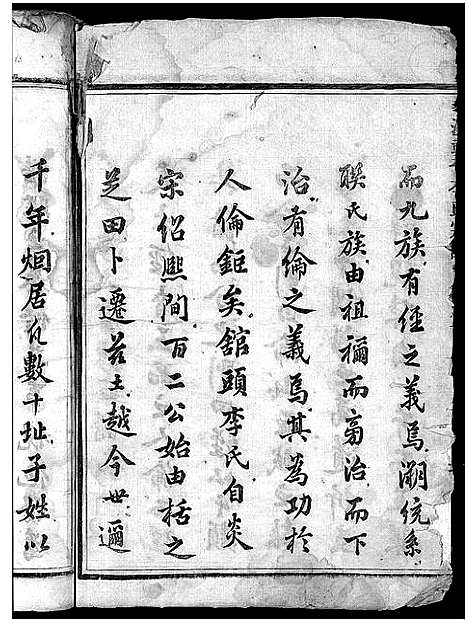 而九族有經之義焉溯統系
聯氏族由祖禰而旁治而下
治有倫之義焉其為功於
人倫鉅矣舘頭李氏自炎
宋紹熙間百二公始由括之
芝田卜遷茲土越今世邇
千年烟居凡數十址子姓以